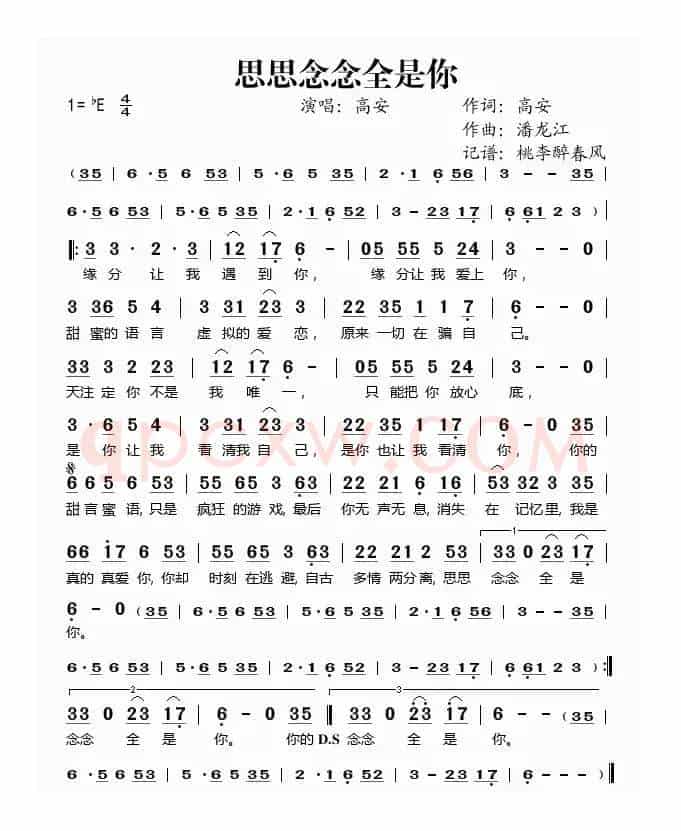 思思念念全是你
1= ♭E 4/4 演唱：高安 作词：高安
作曲：潘龙江
记谱：桃李醉春风
( 35 | 6 · 5 6 53 | 5 · 6 5 35 | 2 · 1 6 56 | 3 - - 35 |
6 · 5 6 53 | 5 · 6 5 35 | 2 · 1 6 52 | 3 - 23 17 | 6 61 2 3 )
|: 3 3 · 2 · 3 | 12 17 6 - | 05 55 5 24 | 3 - - 0 |
缘 分 让 我 遇 到 你， 缘 分让 我 爱上 你，
3 36 5 4 | 3 31 23 3 | 22 35 1 17 | 6 - - 0 |
甜 蜜的 语 言 虚 拟的 爱 恋， 原来 一切 在 骗 自 己。
33 3 2 23 | 12 17 6 - | 05 55 5 24 | 3 - - 0 |
天注 定 你 不是 我 唯 一， 只 能把 你 放心 底，
3 · 6 5 4 | 3 31 23 3 | 22 35 1 17 | 6 - 0 35 |
是 你 让 我 看 清我 自 己， 是你 也让 我 看清 你， 你的
qpcxw.com
66 5 6 53 | 55 35 3 63 | 22 21 6 16 | 53 32 2 35 |
甜言 蜜 语，只是 疯狂 的游 戏，最后 你无 声无 息，消失 在 记忆 里，我是
1
66 17 6 53 | 55 55 3 63 | 22 21 2 53 | 33 0 23 17 |
真的 真爱 你，你却 时刻 在逃 避，自古 多情 两分 离，思思 念念 全 是
6 - 0 ( 35 | 6 · 5 6 53 | 5 · 6 5 35 | 2 · 1 6 56 | 3 - - 35 |
你。
6 · 5 6 53 | 5 · 6 5 35 | 2 · 1 6 52 | 3 - 23 17 | 6 61 2 3 ) :|
2 3
33 0 23 17 | 6 - 0 35 || 33 0 23 17 | 6 - - ( 35 |
念念 全 是 你。 你的 D.S 念念 全 是 你。
6 · 5 6 53 | 5 · 6 5 35 | 2 · 1 6 52 | 3 - 23 17 | 6 - - 0 ) ||